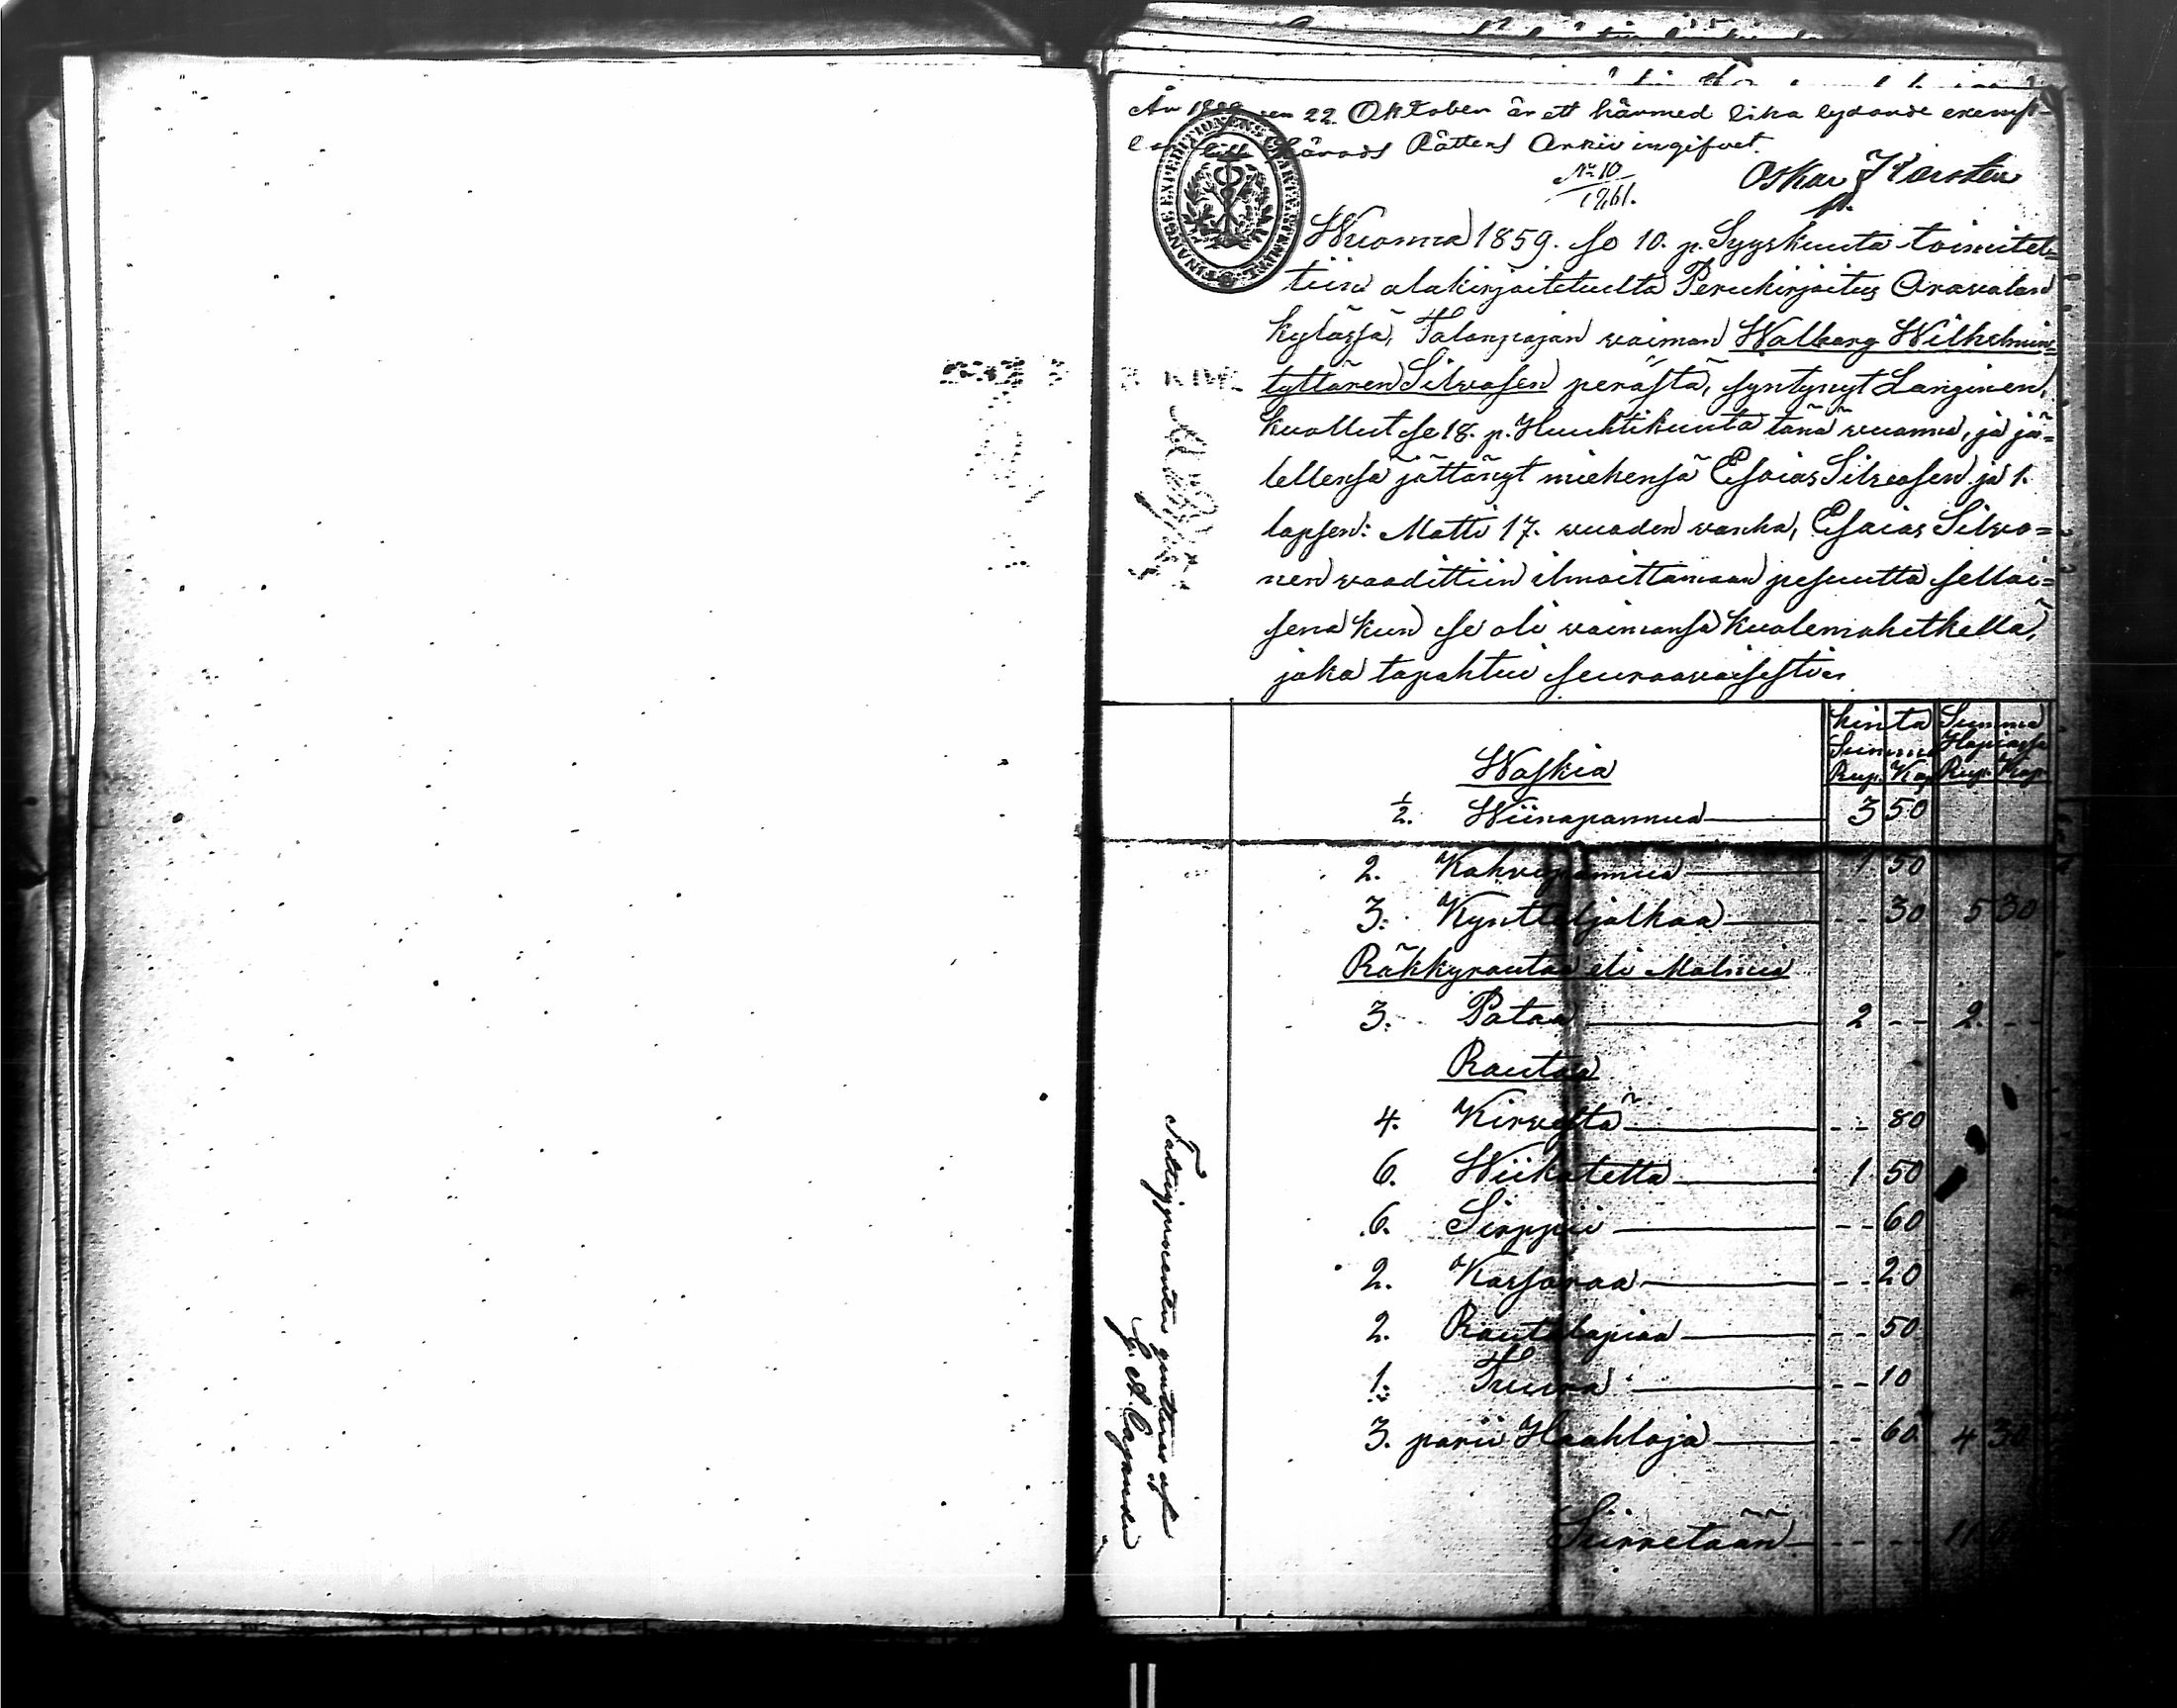 År 18 den 22 Oktober är ett härmed lika lydande exemp=
lar till Härads Rättens Arkiv ingifvet.
No 10
1861.
Oskar Karsten
FINANCE EXPEDITIONENS CHARTÆ
Wuonna 1859. se 10. p. Syyskuuta toimitet=
tiin alakirjoitetuelta Perukirjoitus Arawalan
kylässä, Talonpojan waimon Walborg Wilhelmin=
tyttären Silwosen perästä, syntynyt Langinen,
kuollut se 18. p. Huuhtikuuta tänä wuonna, ja jä=
lellensä jättänyt miehensä Esaias Silwosen ja 1.
lapsen: Matti 17. wuoden wanha, Esaias Silwo=
nen waadittiin ilmoittamaan pesuutta sellai=
sena kun se oli waimonsa kuolemahetkellä,
joka tapahtui seuraawaisesti:
Hinta Summa
Summa Hopiassa
Rup. Kop. Rup. Kop.
Waskia
1/2. Wiinapannua 3 50
2. Kahvipannua 1 50
3. Kynttiljalkaa - - 30 5 30
Räkkyrautaa eli Malmia
3. Pataa 2 - - 2. - -
Rautaa
4. Kirwestä - - 80
6. Wiikatetta 1 50
6. Sirppii - - 60
2. Kassaraa - - 20
2. Rautalapiaa - - 50
1. Tuura - - 10
3. parii Haahloja - - 60 4 30
Siirretään - - - - 11
Fattigprocenten qvitteras af